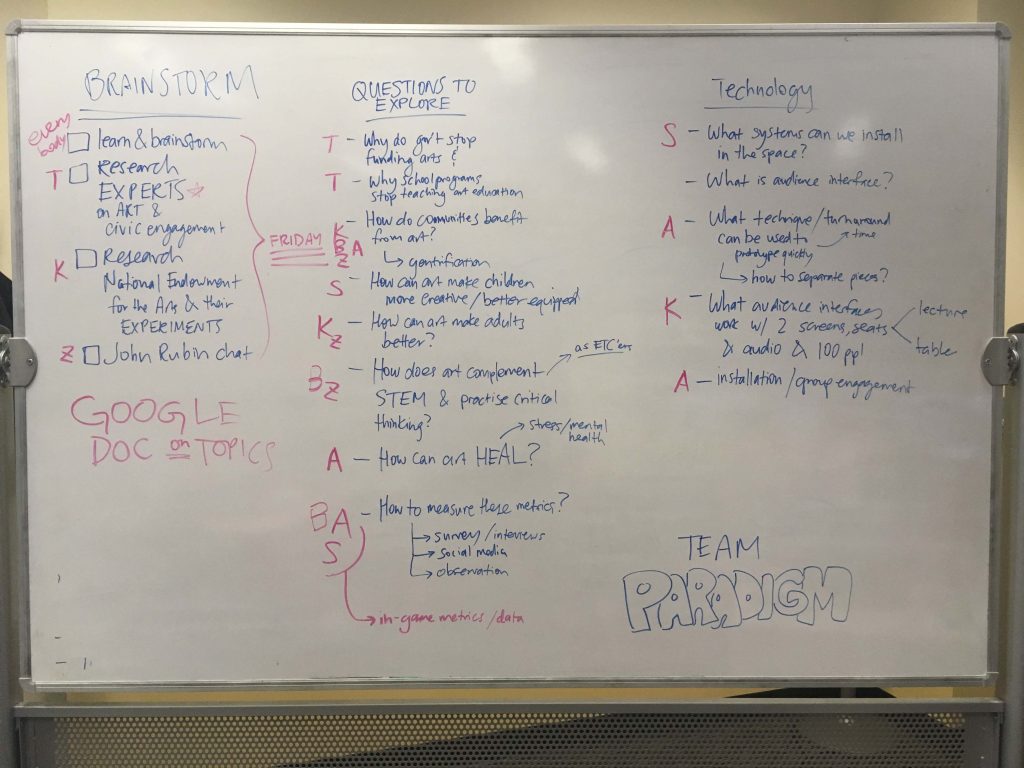 BRAINSTORM
everybody
learn & brainstorm
T
Research
EXPERTS
on ART &
civic engagement
K
Research
National Endowment
for the Arts & their
EXPERIMENTS
Z
John Rubin chat
FRIDAY
GOOGLE
DOC on TOPICS
QUESTIONS TO
EXPLORE
T - Why do gov't stop
funding arts &
T - Why school programs
stop teaching art education
K B Z A - How do communities benefit
from art?
gentrification
S - How can art make children
more creative/better equipped
K Z - How can art make adults
better?
B Z - How does art complement
as ETC'ers
STEM & practise critical
thinking?
stress/mental
health
A - How can art HEAL?
B A S - How to measure these metrics?
survey/interviews
social media
observation
in-game metrics/data
Technology
S - What systems can we install
in the space?
- What is audience interface?
A - What technique/turnaround
time
can be used to
prototype quickly
how to separate pieces?
K - What audience interfaces
work w/ 2 screens, seats
& audio & 100 ppl
lecture
table
A - installation/group engagement
TEAM
PARADIGM